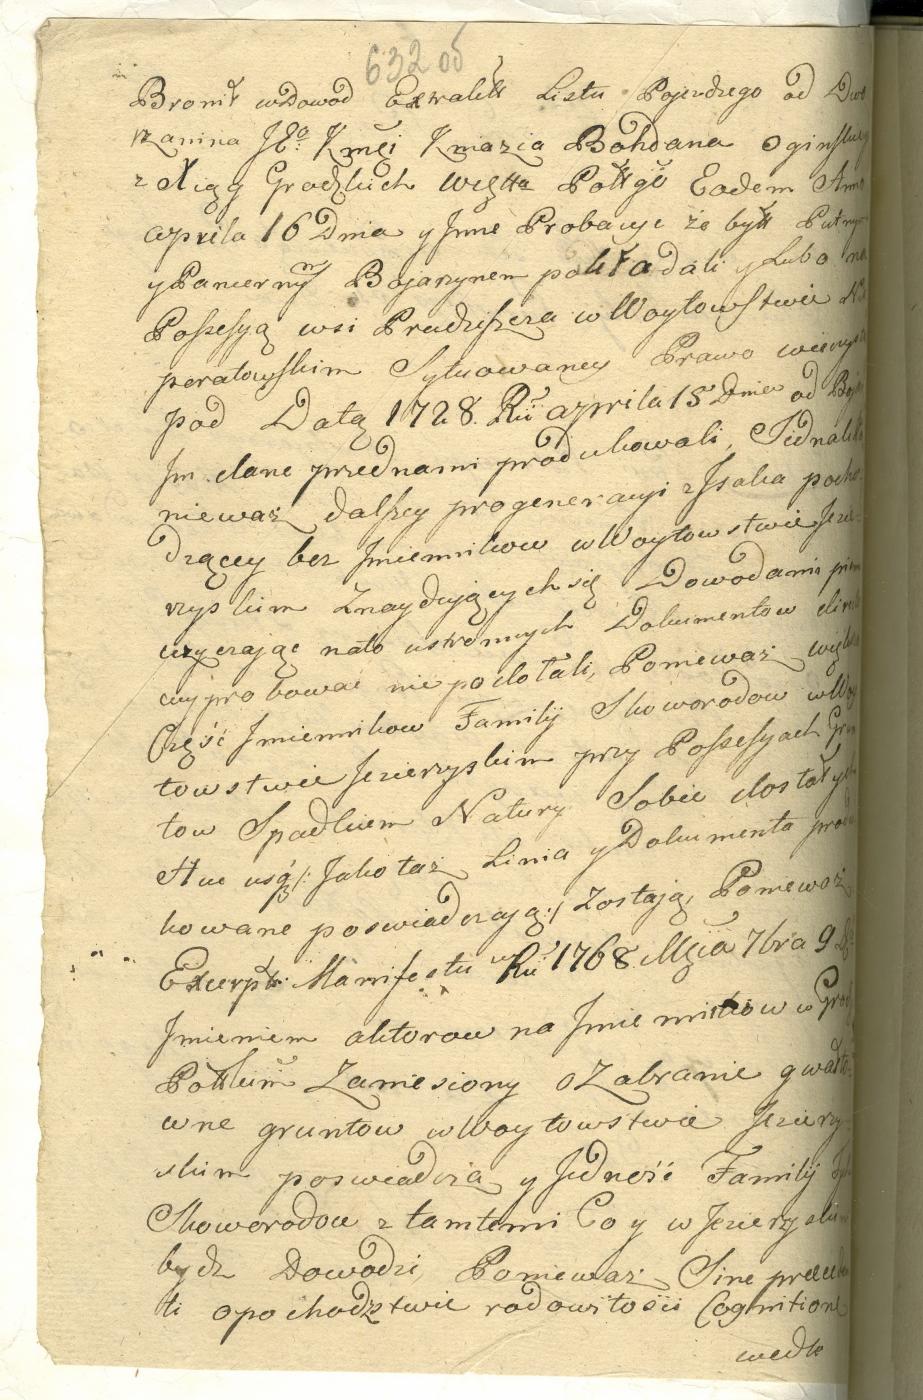 632 об
Bronił wDowod Extraktt Listu Pojezdzego od Dwo
rzanina JEº: Kmći Kniazia Bohdana Oginskiego
z Xiąg Grodzkich Wgztta Połłgo Eodem Anno
apryla 16 Dnia y Jnne Probacye że bytt Putnym
y Pancernym Bojarynem pokładali y Lubo na
Possesyą wsi Pradziszcza w Woytowstwie
peratowskim Sytuowaney Prawo wieczyste
pod Datą 1728. Ru apryla 18 Dnia od
Jm dane przed nami produkowali, Jednakże
nieważ dalszey progeneracyi z Jsaka pocho
dzącey bez Jmiennikow w Woytowstwie Jezie
rzyskim Znayduiących się Dowodami
czyczając nato ustronnych Dokumentow
wyprobować nie podołali, Ponieważ większa
Część Jmiennikow Familij Skoworodow w Woy
towstwie Jezierzyskim przy Possesyach Grun
tow Spadkiem Natury Sobie dostałych
Huc usq /: Jako taż Linia y Dokumenta produ
kowane poswiadczają:/ Zostają, Ponieważ
Excerpt Manifestu w Ru 1768 Mća 7bra 9
Jmieniem aktorow na Jmiennikow w Grod
Połłkim Zaniesiony o Zabranie gwałto
wne gruntow w Woytowstwie Jezierzy
skim poswiadcza y Jedność Familij
Skoworodow z tamtemi Co y w Jezierzyskim
bydz Dowodzi, Ponieważ Sine precede
ti o pochodzstwie rodowitosci Cognitione
wedle